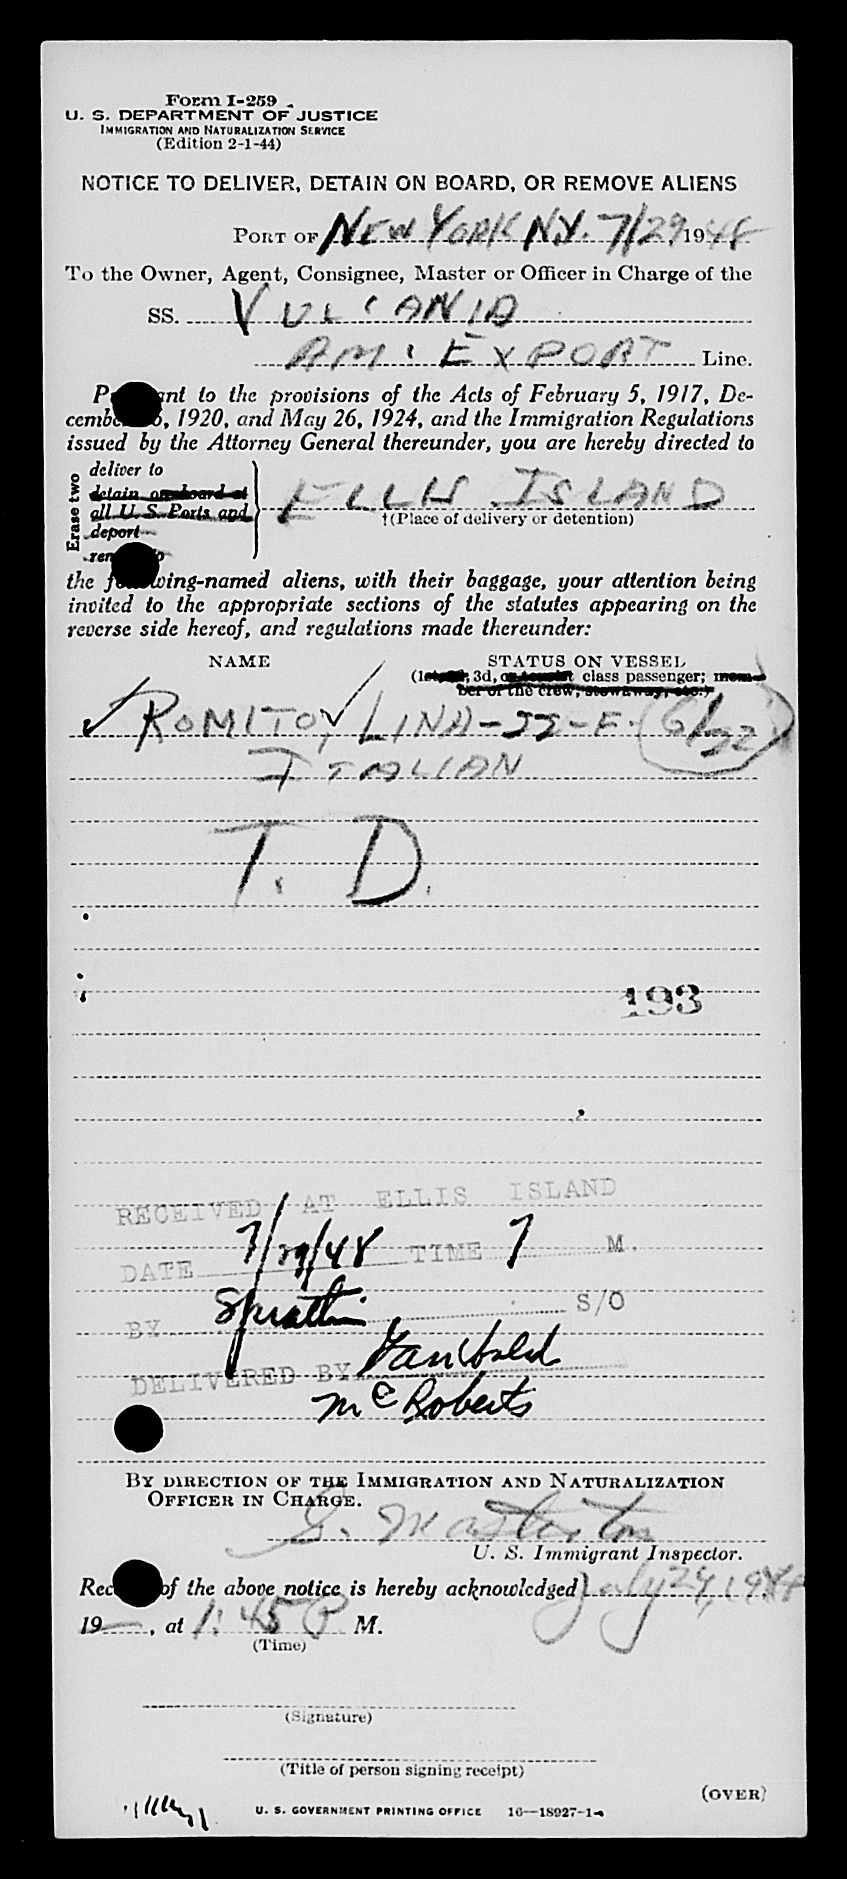 Form I-259
U. S. DEPARTMENT OF JUSTICE
IMMIGRATION AND NATURALIZATION SERVICE
(Edition 2-1-44)
NOTICE TO DELIVER, DETAIN ON BOARD, OR REMOVE ALIENS
PORT OF NEW YORK N.Y. 7/29 1948
To the Owner, Agent, Consignee, Master or Officer in Charge of the
SS. VULCANIA
AM. EXPORT Line.
P nt to the provisions of the Acts of February 5, 1917, De-
cembe , 1920, and May 26, 1924, and the Immigration Regulations
issued by the Attorney General thereunder, you are hereby directed to
Erase two
deliver to
detain on board at
all U. S. Ports and
deport
ELLIS ISLAND
†(Place of delivery or detention)
the f wing-named aliens, with their baggage, your attention being
invited to the appropriate sections of the statutes appearing on the
reverse side hereof, and regulations made thereunder:
NAME STATUS ON VESSEL
3d, class passenger; mem-
ber of the crew, stowaway, etc.)
✓ ROMITO, LINA - 22 - F.
ITALIAN
T. D.
193
RECEIVED AT ELLIS ISLAND
DATE 7/29/48 TIME 7 M.
BY S/O
DELIVERED BY
McRoberts
BY DIRECTION OF THE IMMIGRATION AND NATURALIZATION
OFFICER IN CHARGE.
G. Masterton
U. S. Immigrant Inspector.
Rec of the above notice is hereby acknowledged July 29, 1948
19 , at 1:45 P M.
(Time)
(Signature)
(Title of person signing receipt)
(OVER)
U. S. GOVERNMENT PRINTING OFFICE 16—18927-1